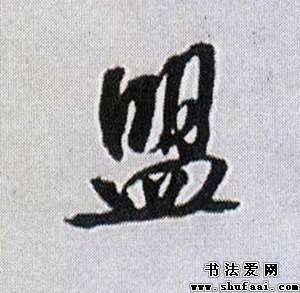 盟
书法爱网
www.shufaai.com